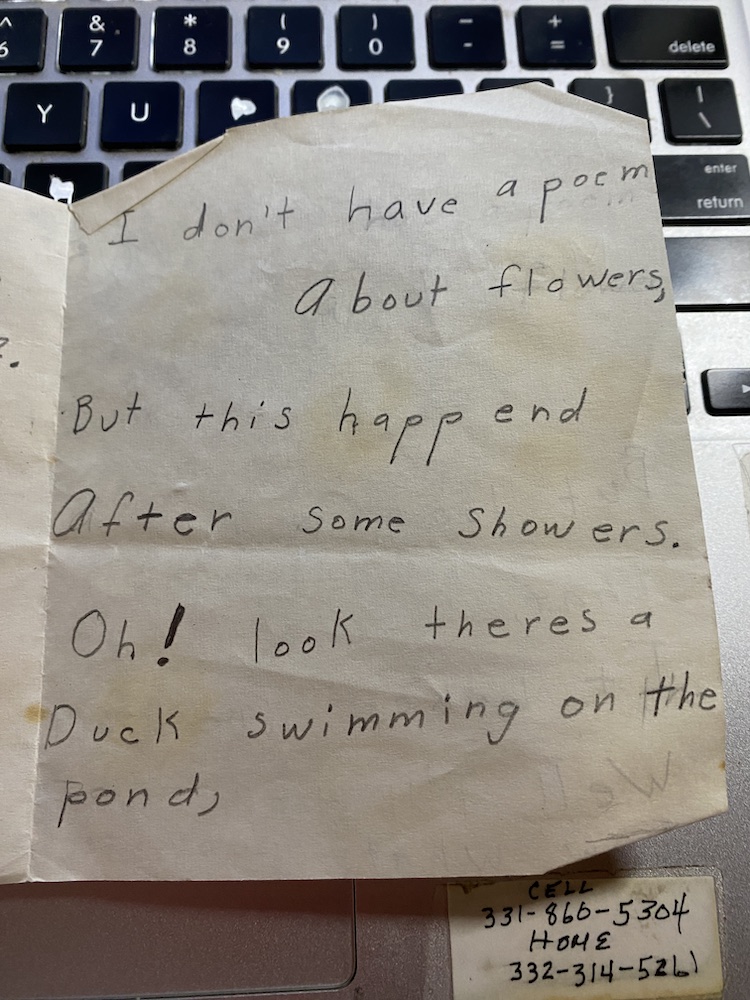 ^
6
&
7
*
8
(
9
)
0
_
-
+
=
delete
Y
U
}
|
\
enter
return
I don't have a poem
About flowers,
But this happ end
After some showers.
Oh! look theres a
Duck swimming on the
pond,
?.
CELL
331-860-5304
HOME
332-314-5261